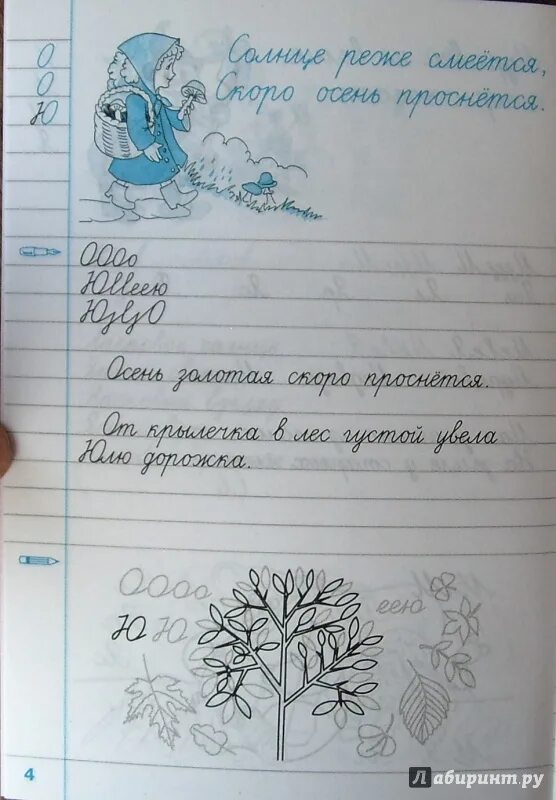 О
О
Ю
Солнце реже смеётся,
Скоро осень проснётся.
ОООо
ЮШеею
ЮзЦзО
Осень золотая скоро проснётся.
От крылечка в лес густой увела
Юлю дорожка.
О О о о
еею
Ю Ю
4
Лабиринт.ру